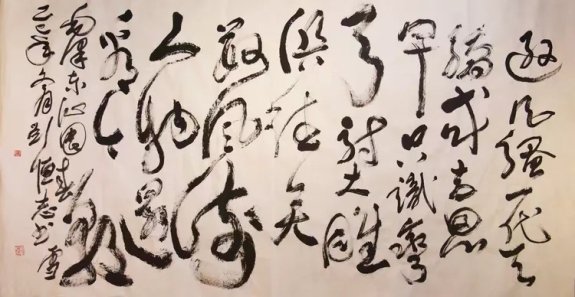 逊风骚一代天
骄成吉思
只識彎
弓射大雕
俱往矣
数风流
人物還
看今朝
毛泽东沁园春雪
彭恒志书